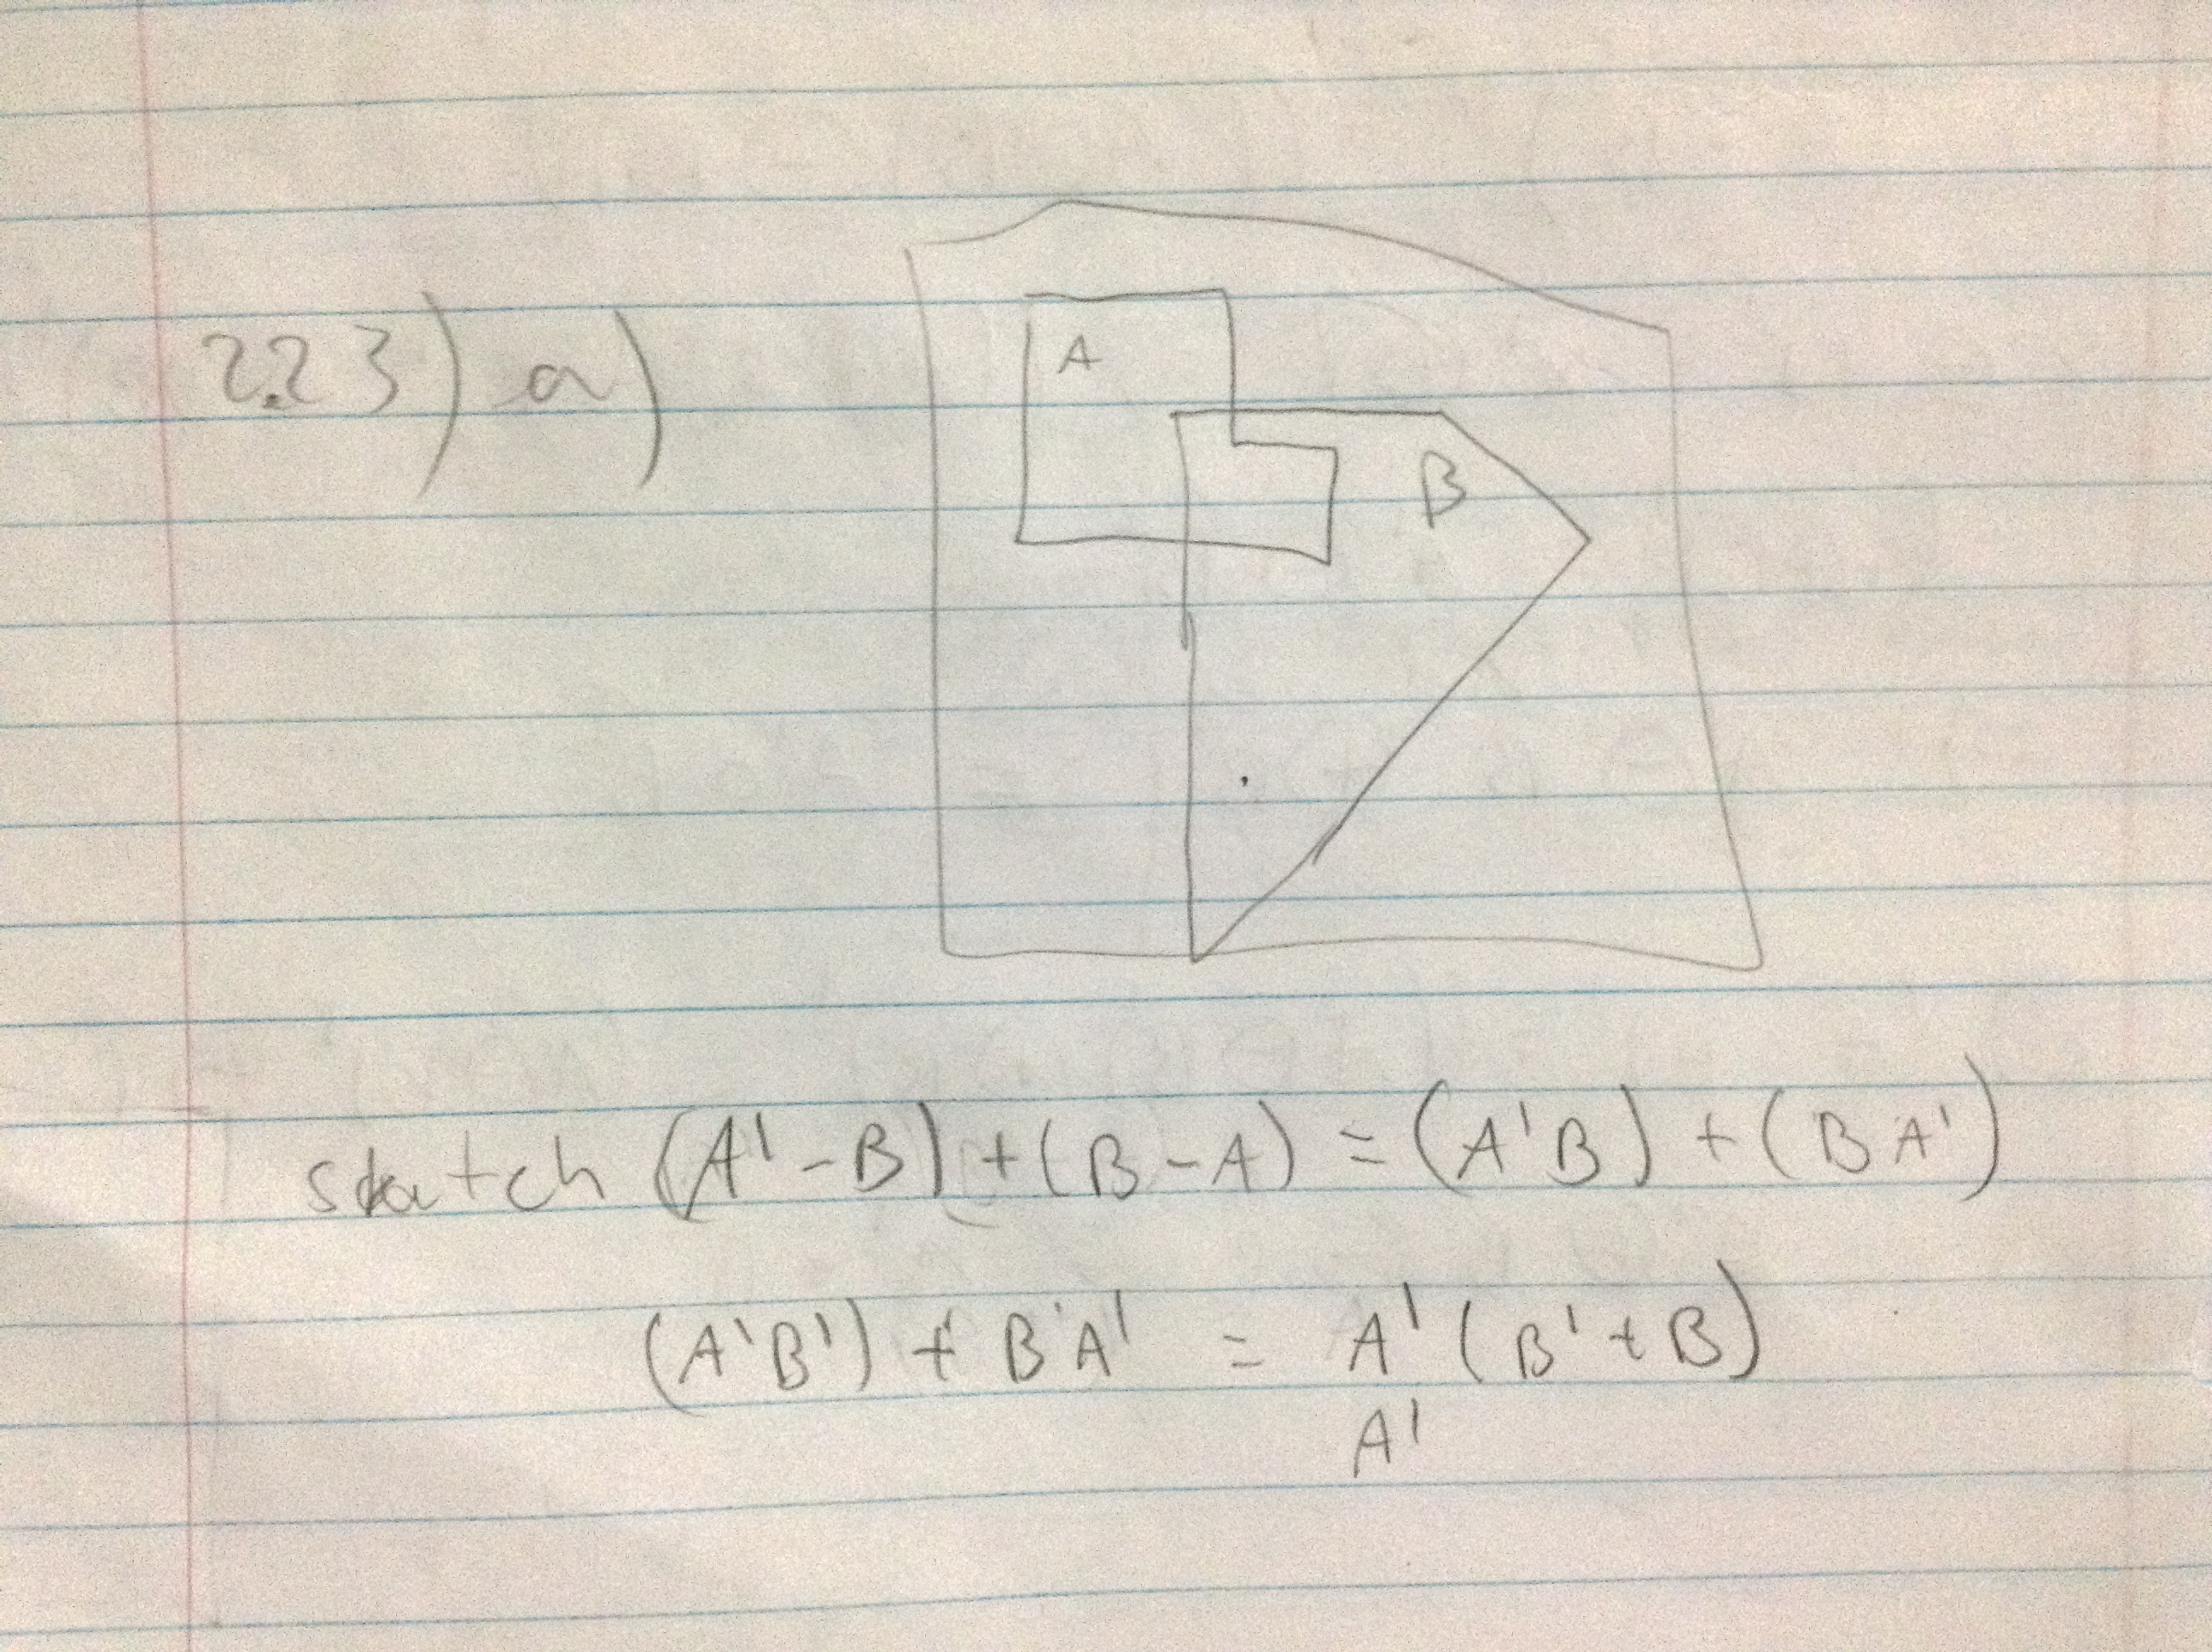 2.23) a)
A
B
sketch (A' - B) + (B - A) = (A'B) + (BA')
(A'B') + BA' = A' (B' + B)
A'